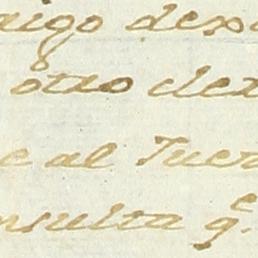 aigo dex
otro dex
e al Tuer
nsulta q.e